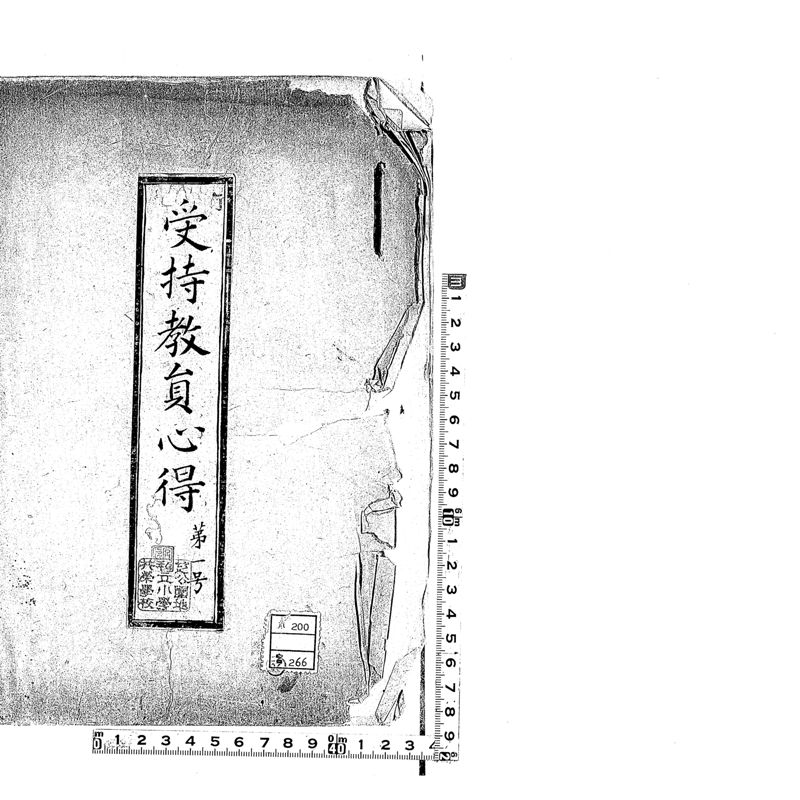 受持教員心得
第一号
芝公園地
私立小学
共榮學校
200
266
1 2 3 4 5 6 7 8 9 10 1 2 3 4 5 6 7 8 9
0 1 2 3 4 5 6 7 8 9 10 1 2 3